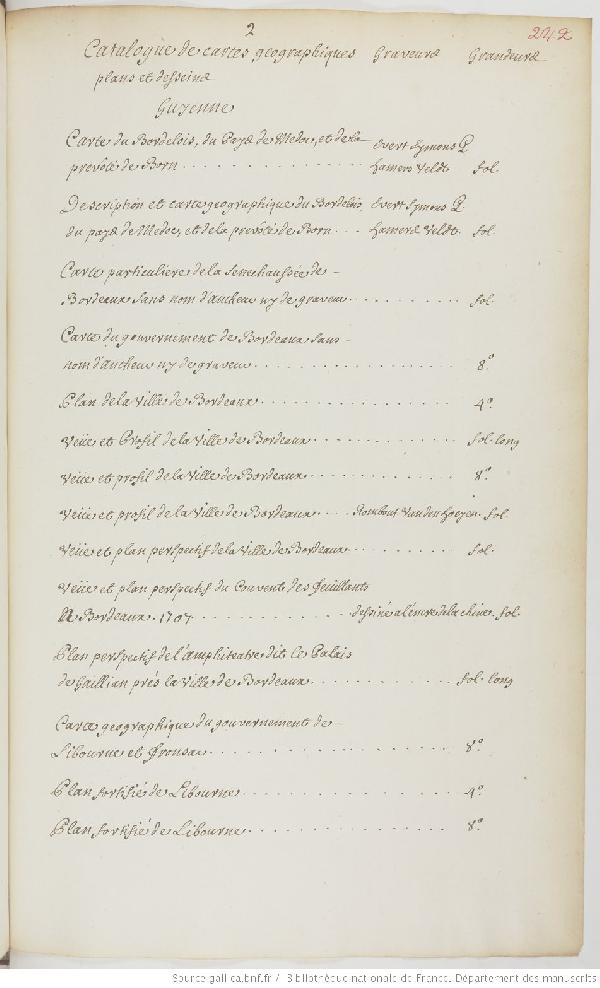 2
242
Catalogue de cartes geographiques Graveurs Grandeurs
plans et desseins
Guyenne
Carte du Bordelois, du Pays de Medoc, et de la Evert Symons
prevoté de Born Hamers Veldt fol.
Description et carte geographique du Bordelois, Evert Symons
du pays de Medoc, et de la prevôté de Born Hamers Veldt. fol.
Carte particuliere de la Senechaussée de
Bordeaux sans nom d'autheur ny de graveur fol.
Carte du gouvernement de Bordeaux sans
nom d'autheur ny de graveur 8°
Plan de la Ville de Bordeaux 4°.
Veüe et Profil de la Ville de Bordeaux fol. long
Veüe et profil de la Ville de Bordeaux 8°
Veüe et profil de la Ville de Bordeaux Rombout Vanden hoeyen. fol.
Veüe et plan perspectif de la Ville de Bordeaux fol.
Veüe et plan perspectif du Couvent des feuillants
A Bordeaux. 1707 dessiné a l'encre de la chine. fol.
Plan perspectif de l'amphiteatre dit le Palais
de Gaillian prés la Ville de Bordeaux fol. long
Carte geographique du gouvernement de
Libourne et Fronsac 8°.
Plan fortifié de Libourne 4°.
Plan fortifié de Libourne 8°.
Source gallica.bnf.fr / Bibliothèque nationale de France. Département des manuscrits